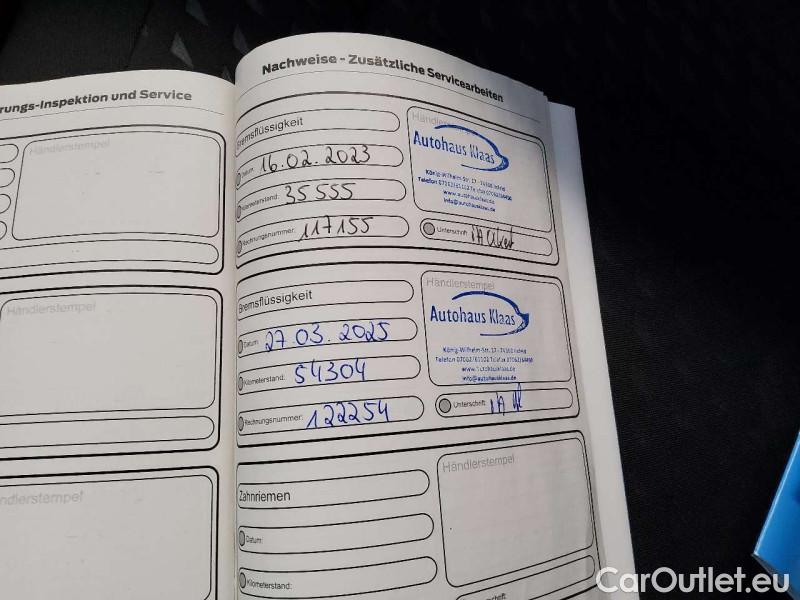 rungs-Inspektion und Service
Händlerstempel
Händlerstempel
ndlerstempel
Nachweise - Zusätzliche Servicearbeiten
Bremsflüssigkeit
Datum: 16.02.2023
Kilometerstand: 35 555
Rechnungsnummer: 117155
Händlerstempel
Autohaus Klaas
König-Wilhelm-Str. 37 - 74360 Ilsfeld
Telefon 07062/61102 Telefax 07062/64498
www.autohausklaas.de
info@autohausklaas.de
Unterschrift: iA
Bremsflüssigkeit
Datum: 27.03.2025
Kilometerstand: 54304
Rechnungsnummer: 122254
Händlerstempel
Autohaus Klaas
König-Wilhelm-Str. 37 - 74360 Ilsfeld
Telefon 07062/61102 Telefax 07062/64498
www.autohausklaas.de
info@autohausklaas.de
Unterschrift: iA
Zahnriemen
Datum:
Kilometerstand:
Händlerstempel
CarOutlet.eu